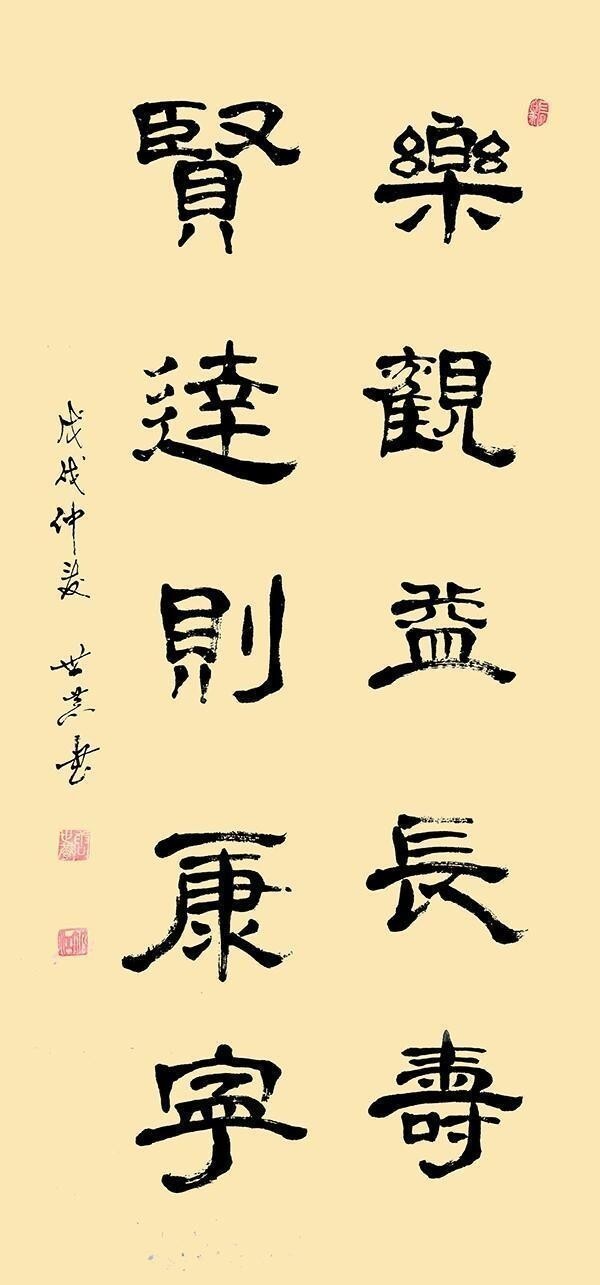 樂觀益長壽
賢達則康寧
戊戌仲夏 世其書